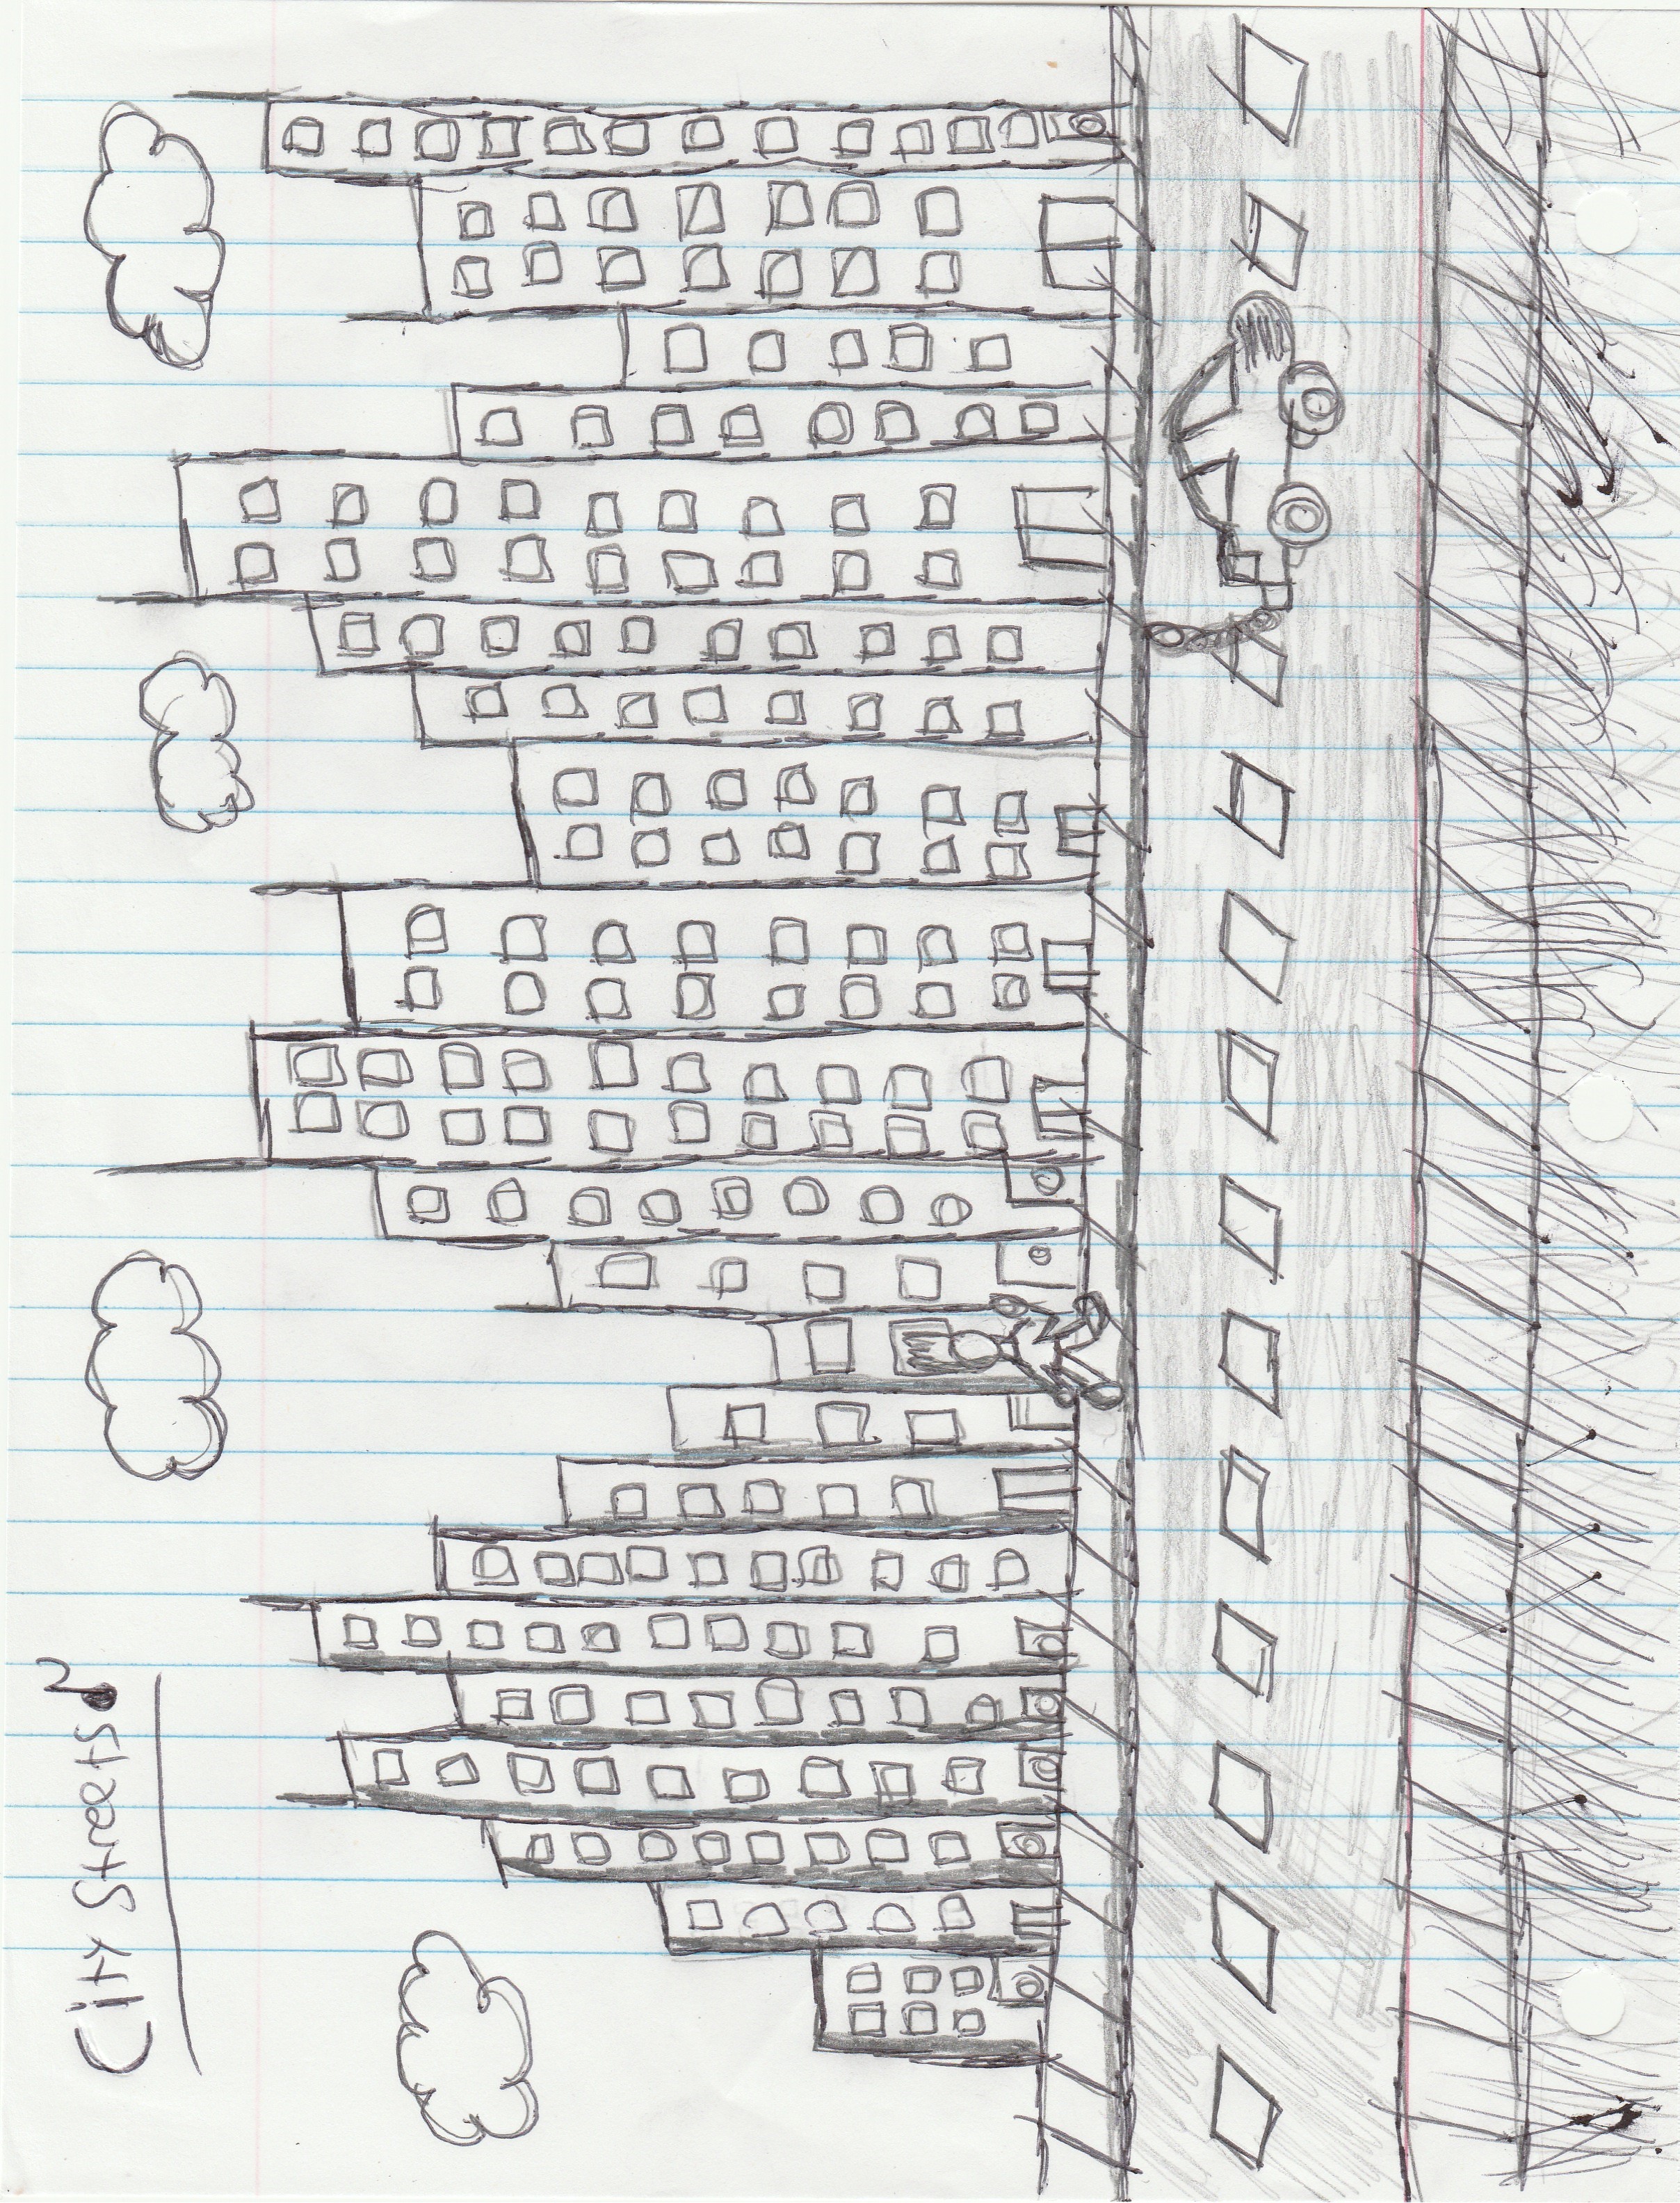 City Streets♪